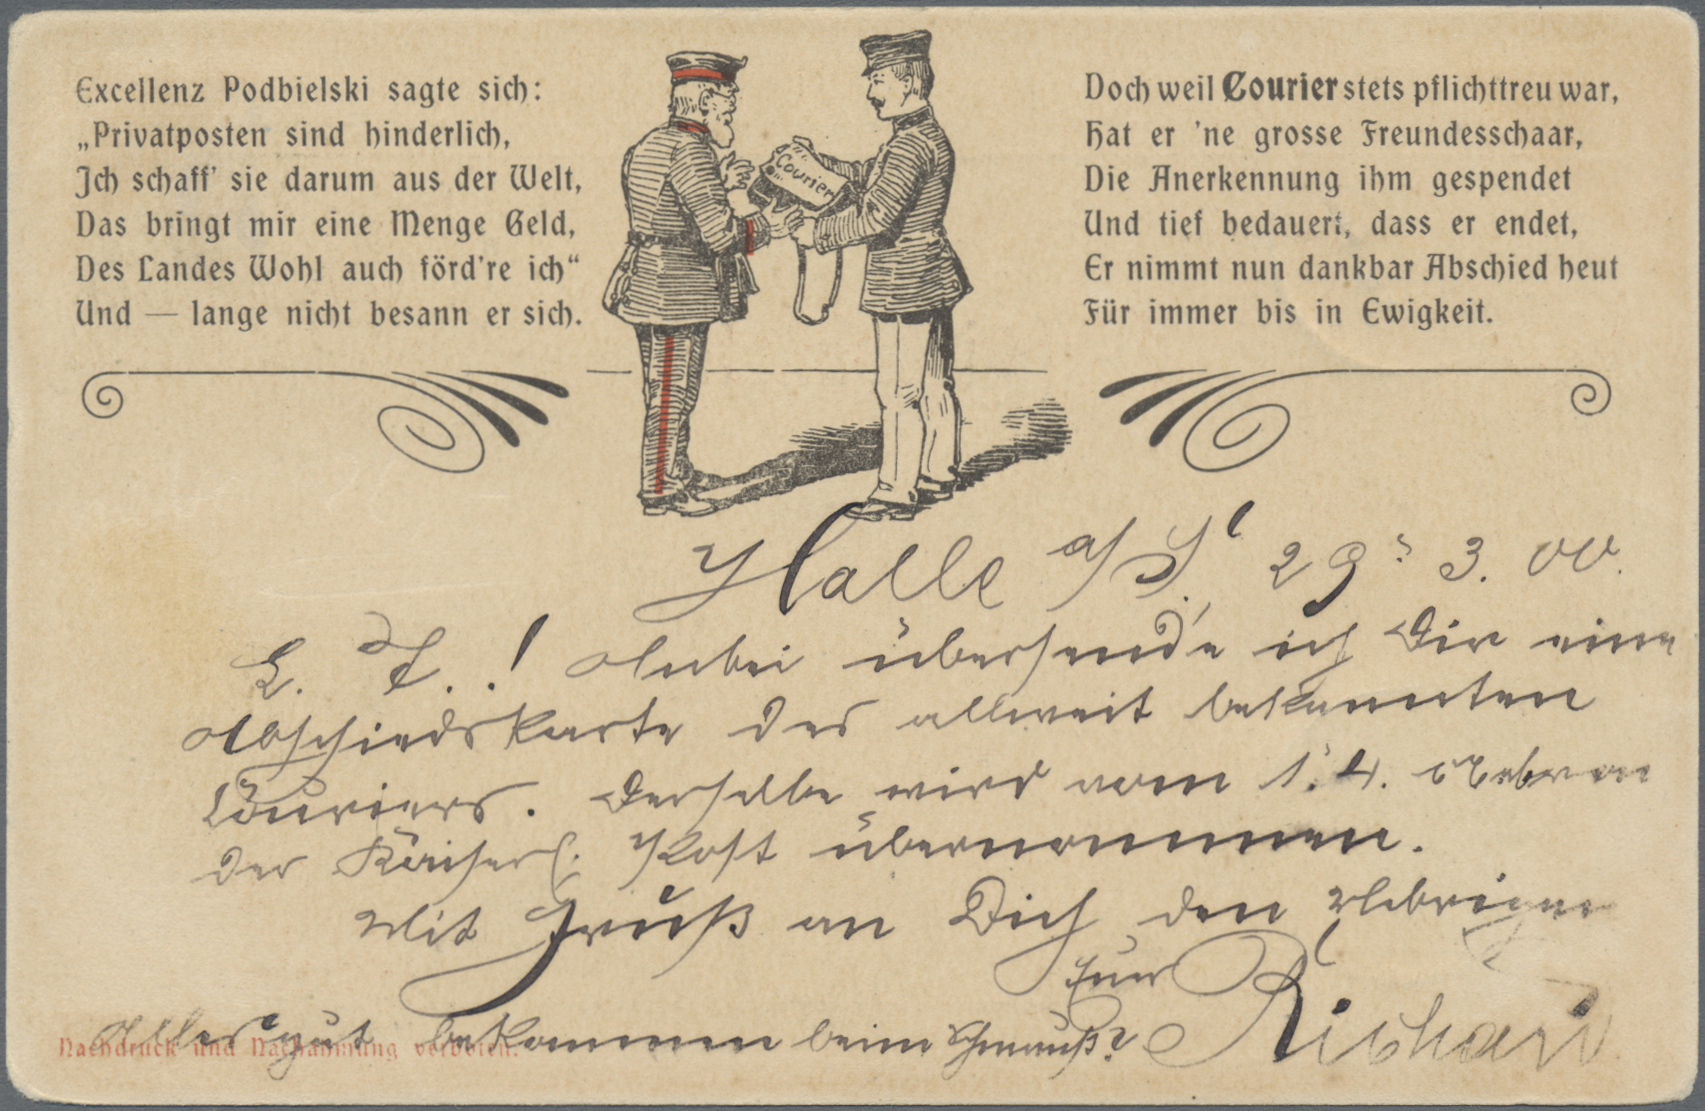 Excellenz Podbielski sagte sich:
„Privatposten sind hinderlich,
Ich schaff' sie darum aus der Welt,
Das bringt mir eine Menge Geld,
Des Landes Wohl auch förd're ich“
Und — lange nicht besann er sich.
Courier
Doch weil Courier stets pflichttreu war,
Hat er 'ne grosse Freundesschaar,
Die Anerkennung ihm gespendet
Und tief bedauert, dass er endet,
Er nimmt nun dankbar Abschied heut
Für immer bis in Ewigkeit.
Halle a/S. 29. 3. 00.
L. F.! Anbei übersende ich Dir eine
Abschiedskarte des allweit bekannten
Couriers. Derselbe wird vom 1. 4. von
der Kaiserl. Post übernommen.
Mit Gruß an Dich den Uebrigen
Euer Richard
Alles gut bekommen beim Schmauß?
Nachdruck und Nachahmung verboten.